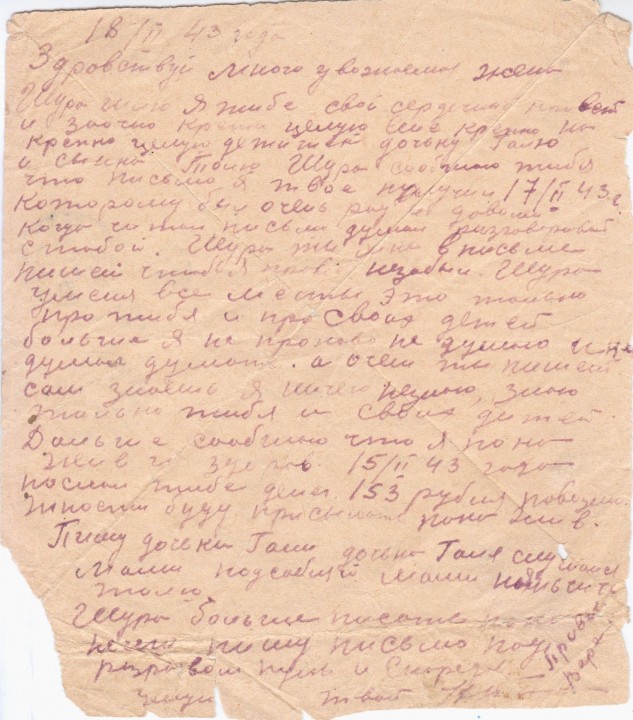 18/II 43 года
Здравствуй много уважаемая жена
Шура шлю я тибе свой сердечный привет
и заочно крепко целую еще крепко на
крепко целую детишек дочьку Галю
и сынка Толю Шура сообщаю тибя
что письмо я твое получил 17/II 43 г.
которому был очень рад и доволен
когда читал письмо думал разговаривал
с тобой. Шура ты мне в письме
пишеш чтобы я про вас незабыл. Шура
у меня все мечты это только
про тибя и про своих детей
больше я не про кого не думаю и не
думал думать. а о чем ты пишеш
сам знаеш я ничего незнаю, знаю
только тибя и своих детей.
Дальше сообщаю что я пока
жив и здоров. 15/II 43 года
послал тибе денег 153 рубля
буду присылать пока жив.
Пишу дочьки Гали дочька Галя слушайся
мами подсобляй мами
Толю.
Шура больше писать пока
нечего пишу письмо под
разрывом пуль и
целую твой